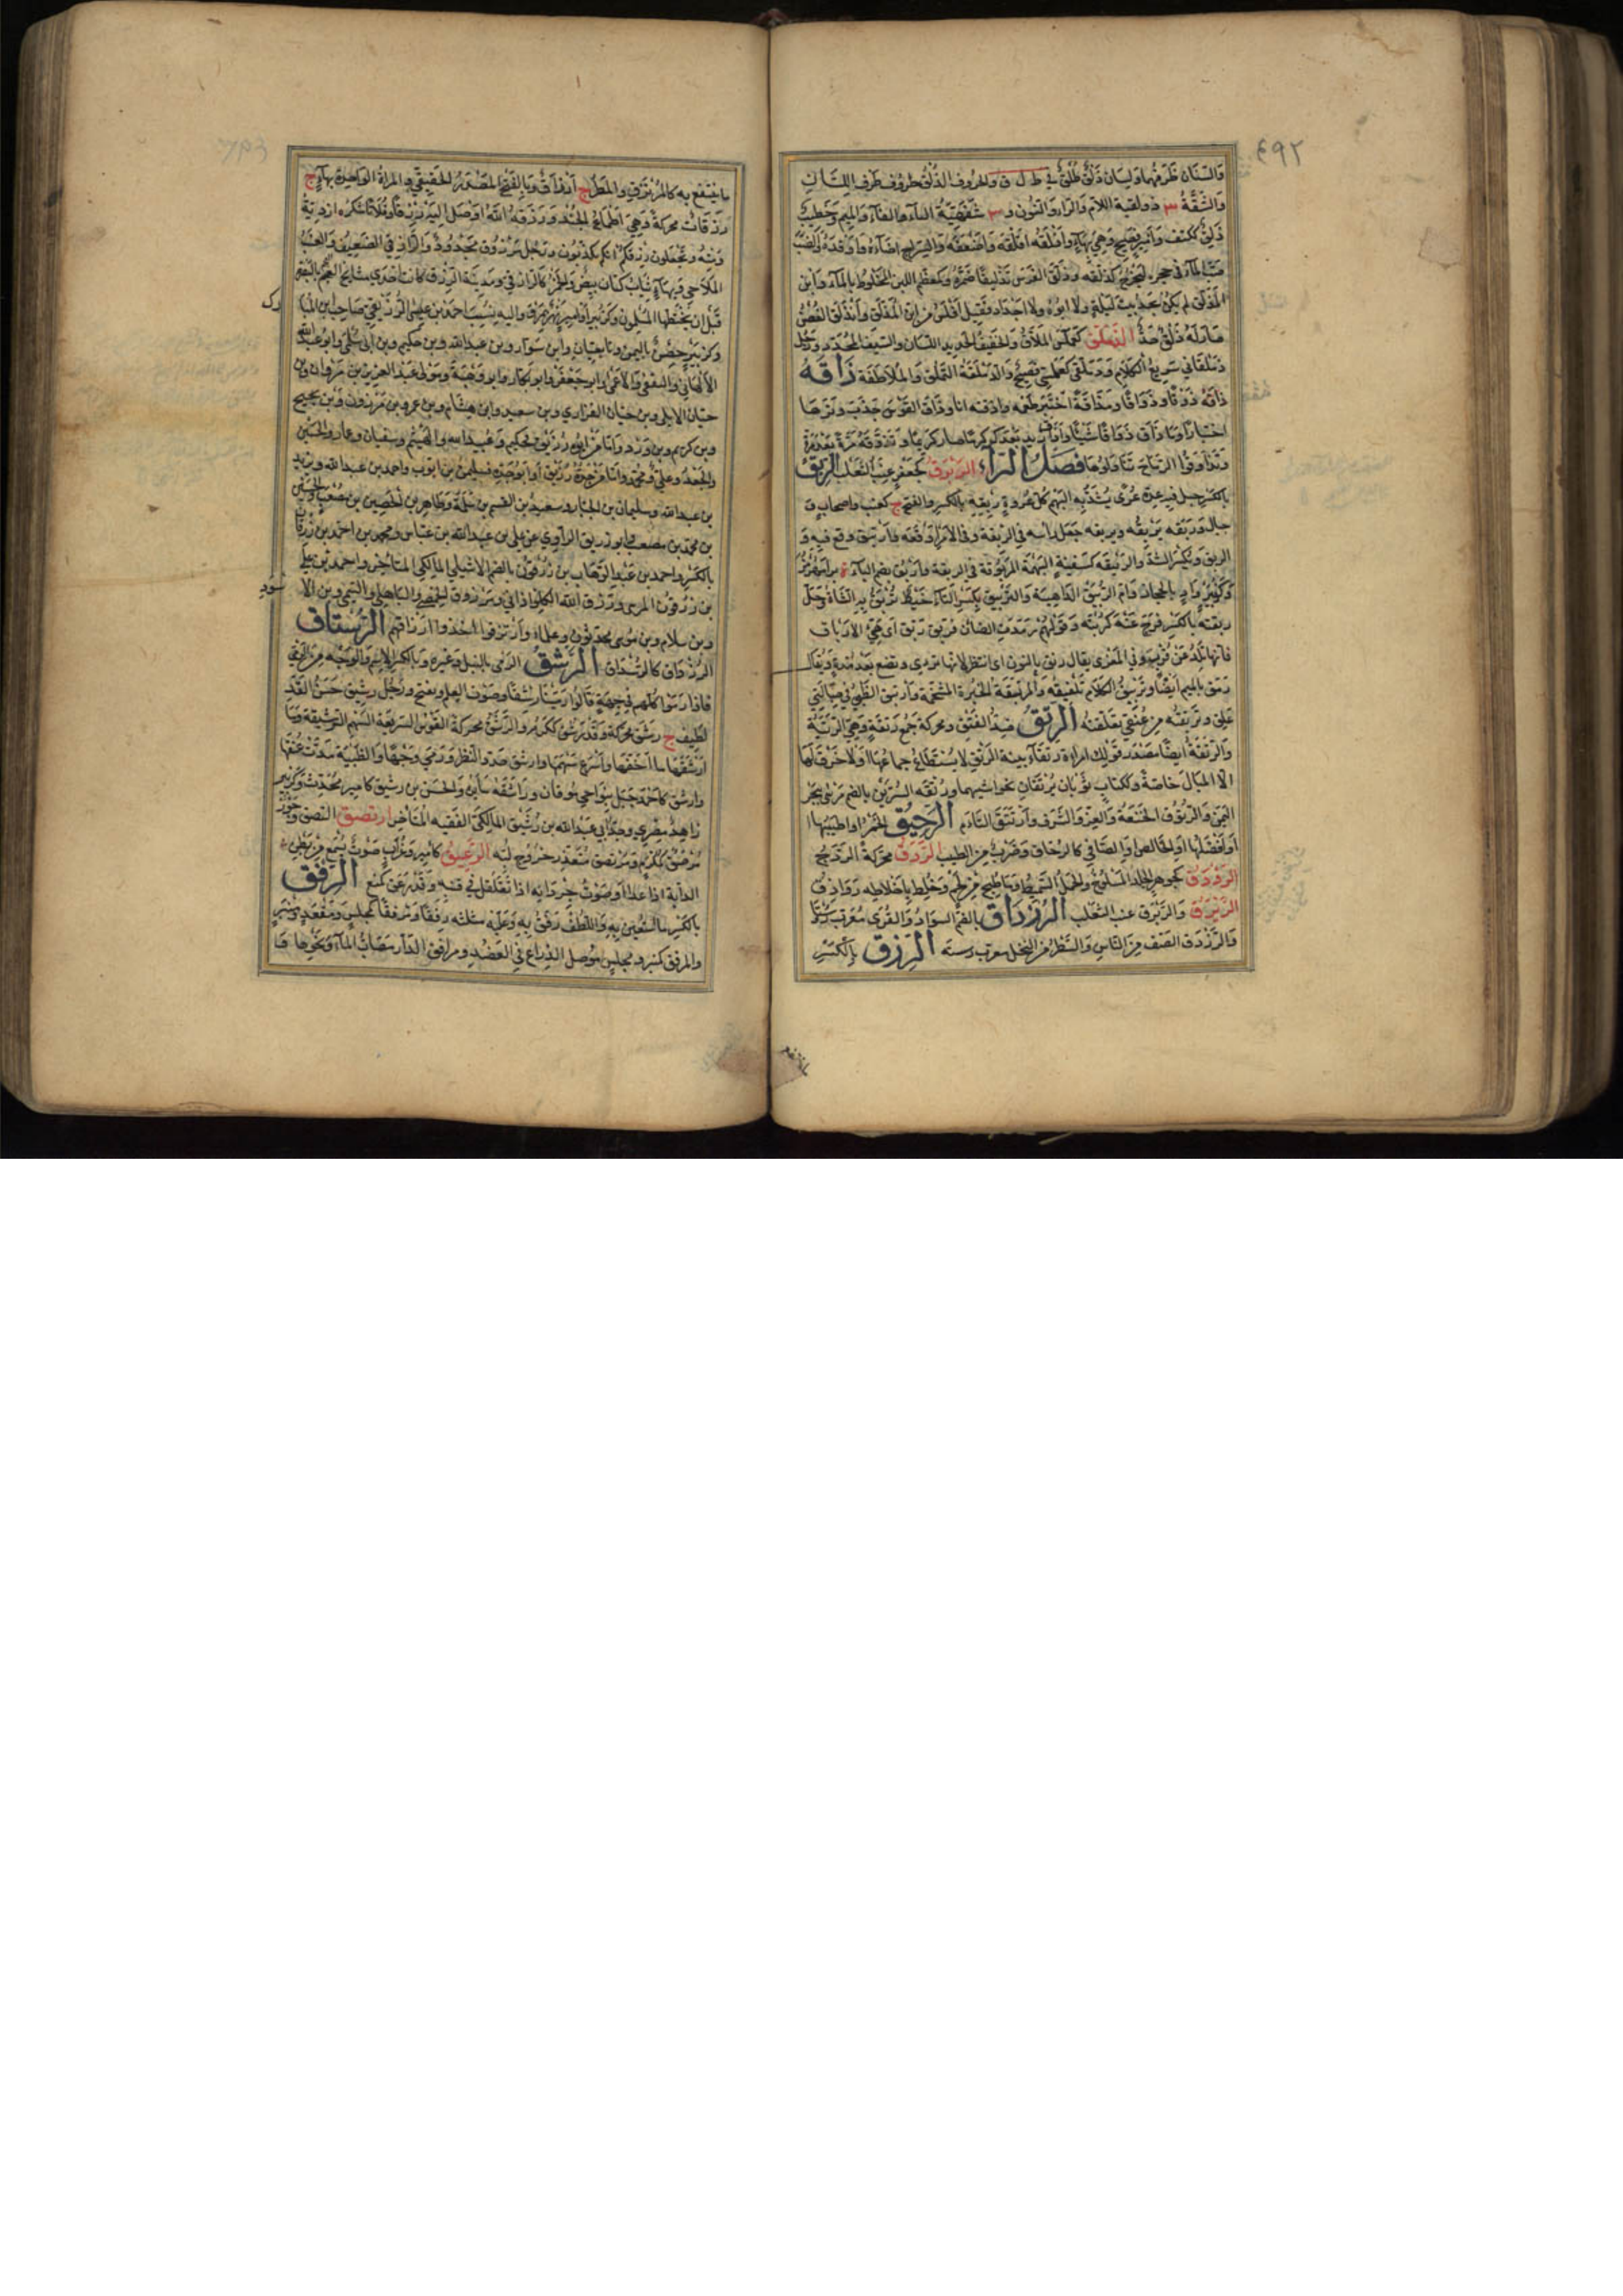 ٤٩٢
والسنان طرفهما ولسان ذلق طلق في ط ل ق والحروف الذلق حروف طرف اللسان
والشفة ٣ ذولقية اللام والراء والنون و ٣ شفهية الباء والفاء والميم وخطيب
ذلق ككتف وأمير فصيح وهي بهاء وأذلقه أقلقه وأضعفه والسراج أضاءه وأوقده والضب
صب الماء في جحره ليخرج كذلقه وذلق الفرس تذليقا ضمره وكمعظم اللبن المخلوط بالماء وابن
المذلق لم يكن يجد بيت ليلة ولا أبوه ولا أجداده فقيل أفلس من ابن المذلق وانذلق الغصن
صار له ذلق حد الذملق كعملس الملاق والخفيف الحديد اللسان والسيف المحدد ورجل
ذملقاني سريع الكلام وذملقي كعملسي فصيح والذملقة التملق والملاطفة ذاقه
ذاقه ذوقا وذواقا ومذاقا ومذاقة اختبر طعمه وأذقته أنا وذاق القوس جذب وترها
اختبارا وما ذاق ذواقا شيئا وأذاق زيد بعدك كرما صار كريما وتذوقه مرة بعد مرة
وتذاوقوا الرماح تناولوها فصل الراء الربرق كجعفر عنب الثعلب الربق
بالكسر حبل فيه عدة عرى يشد به البهم كل عروة ربقة بالكسر والفتح ج كعنب وأصحاب و
جبال وربقه يربقه ويربقه جعل رأسه في الربقة وفي الأمر أوقعه فارتبق وقع فيه و
الربق ويكسر الشد والربيقة كسفينة البهمة المربوقة في الربقة وأربق بضم الباء ة برامهرمز
وكزبير واد بالحجاز وأم الربيق الداهية والتربيق بكسر التاء خيط تربق به الشاة وحل
ربقته بالكسر فرج عنه كربته وقولهم رمدت الضأن فربق ربق أي هيئ الأرباق
فإنها تلد عن قرب وفي المعزى يقال رنق بالنون أي انتظر لأنها ترئي وتضع بعد مدة ويقال
رمق بالميم أيضا وتربيق الكلام تلفيقه والمربقة الخبزة المشحمة وارتبق الظبي في حبالتي
علق وتربقته من عنقي تعلقته الرتق ضد الفتق ومحركة جمع رتقة وهي الرتبة
والرتقة أيضا مصدر قولك امرأة رتقاء بينة الرتق لا يستطاع جماعها أو لا خرق لها
إلا المبال خاصة وككتاب ثوبان يرتقان بحواشيهما ورتقه السرين بالضم مرسى ببحر
اليمن والرتوق الخنعة والعز والشرف وارتتق التأم الرحيق الخمر أو أطيبها أ
أو أفضلها أو الخالص أو الصافي كالرحاق وضرب من الطيب الردق محركة الردج
الروذق كجوهر الجلد المسلوخ والحمل السميط وما طبخ من لحم وخلط بأخلاطه رواذق
الرنرق والربرق عنب الثعلب الرزداق بالضم السواد والقرى معرب رستا
والرزدق الصف من الناس والسطر من النخل معرب رسته الرزق بالكسر
ما ينتفع به كالمرتزق والمطر ج أرزاق وبالفتح المصدر الحقيقي والمرة الواحدة بهاء ج
رزقات محركة وهي أطماع الجند ورزقه الله أوصل إليه رزقا وفلانا شكره أزدية
ومنه وتجعلون رزقكم أنكم تكذبون ورجل مرزوق مجدود والرازقي الضعيف والعنب
الملاحي وبهاء ثياب كتان بيض والخمر كالرازقي ومدينة الرزق كانت إحدى مسالح العجم بالبصرة
قبل أن يختطها المسلمون وكزبير أو أمير نهر بمرو وإليه نسب أحمد بن عيسى الرزيقي صاحب ابن المبا
رك
وكزبير حصن باليمن وتابعيان وابن سوار وبن عبد الله وبن حكيم وبن أبي سلمى وأبو عبد الله
الألهاني والثقفي والأعمى وأبو جعفر وأبو بكار وأبو وهبة ومولى عبد العزيز بن مروان وبن
حيان الأيلي وبن حيان الفزاري وبن سعيد وابن هشام وبن عمر وبن مرزوق وبن نجيح
وبن كريم وبن ورد وأما من أبوه رزيق فحكيم وعبيد الله والهيثم وسفيان وعمار والحسين
والجعد وعلي ومحمد وأما من جده رزيق أو أبو جده فسليمان بن أيوب وأحمد بن عبد الله ويزيد
بن عبد الله وسليمان بن الجبار وسعيد بن القسم بن سلمة وطاهر بن الحصين بن مصعب والحسين
بن محمد بن مصعب وأبو زريق الراوي عن علي بن عبد الله بن عباس ومحمد بن أحمد بن رزقان
بالكسر وأحمد بن عبد الوهاب بن رزقون بالضم الإشبيلي المالكي المتأخر وأحمد بن علي
بن زرقون المرسي ورزق الله الكلوذاني ومرزوق الحمصي والباهلي والتيمي وبن الأ
سود
وبن سلام وبن موسى محدثون وعلماء وارتزقوا أخذوا أرزاقهم الرستاق
الرزداق كالرسداق الرشق الرمي بالنبل وغيره وبالكسر الاسم والوجه من الرمي
فإذا رموا كلهم في جهة قالوا رمينا رشقا وصوت القلم ويفتح ورجل رشيق حسن القد
لطيف ج رشق محركة وقد رشق ككرم والرشق محركة القوس السريعة السهم الرشيقة وما
أرشقها ما أخفها وأسرع سهمها وأرشق حدد النظر ورمى وجها والظبية مدت عنقها
وأرشق كأحمد جبل بنواحي موقان وراشقه سايره والحسن بن رشيق كأمير محدث وكزبير
زاهد مصري وجد أبي عبد الله بن رشيق المالكي الفقيه المتأخر ارتصق التصق وجوز
مرصق كمكرم ومرتصق متعذر خروج لبه الرعيق كأمير وغراب صوت يسمع من بطن
الدابة إذا عدا أو صوت جردانه إذا تقلقل في قنبه وقد رعق كمنع الرفق
بالكسر ما استعين به واللطف رفق به وعليه مثلثة رفقا ومرفقا كمجلس ومقعد ومنبر
والمرفق كمنبر ومجلس موصل الذراع في العضد ومرافق الدار مصاب الماء ونحوها وا